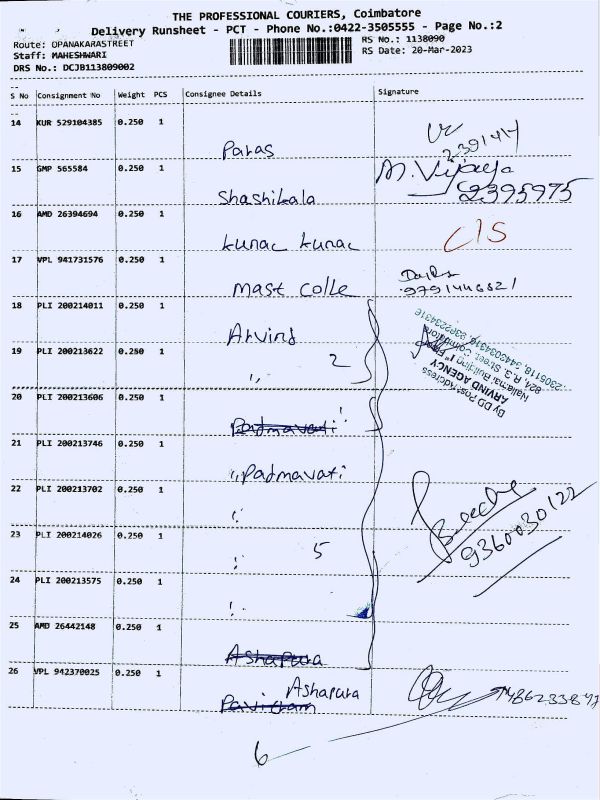 THE PROFESSIONAL COURIERS, Coimbatore
Delivery Runsheet - PCT - Phone No.:0422-3505555 - Page No.:2
Route: OPANAKARASTREET
RS No.: 1138090
Staff: MAHESHWARI
RS Date: 20-Mar-2023
DRS No.: DCJB113809002
S No Consignment No Weight PCS Consignee Details Signature
14 KUR 529104385 0.250 1
Paras
2391414
15 GMP 565584 0.250 1
M. Vijaya
Shashikala
2395975
16 AMD 26394694 0.250 1
kunac kunac
C/S
17 VPL 941731576 0.250 1
Mast Colle
9791446621
18 PLI 200214011 0.250 1
Arvind
19 PLI 200213622 0.250 1
,, 2
By DD Post Address
ARVIND AGENCY
824, R.G. Street, Coimbatore
20 PLI 200213606 0.250 1
Padmavati
21 PLI 200213746 0.250 1
,, Padmavati
22 PLI 200213702 0.250 1
9360030122
23 PLI 200214026 0.250 1
5
24 PLI 200213575 0.250 1
25 AMD 26442148 0.250 1
Ashapura
26 VPL 942370025 0.250 1
Ashapura
6